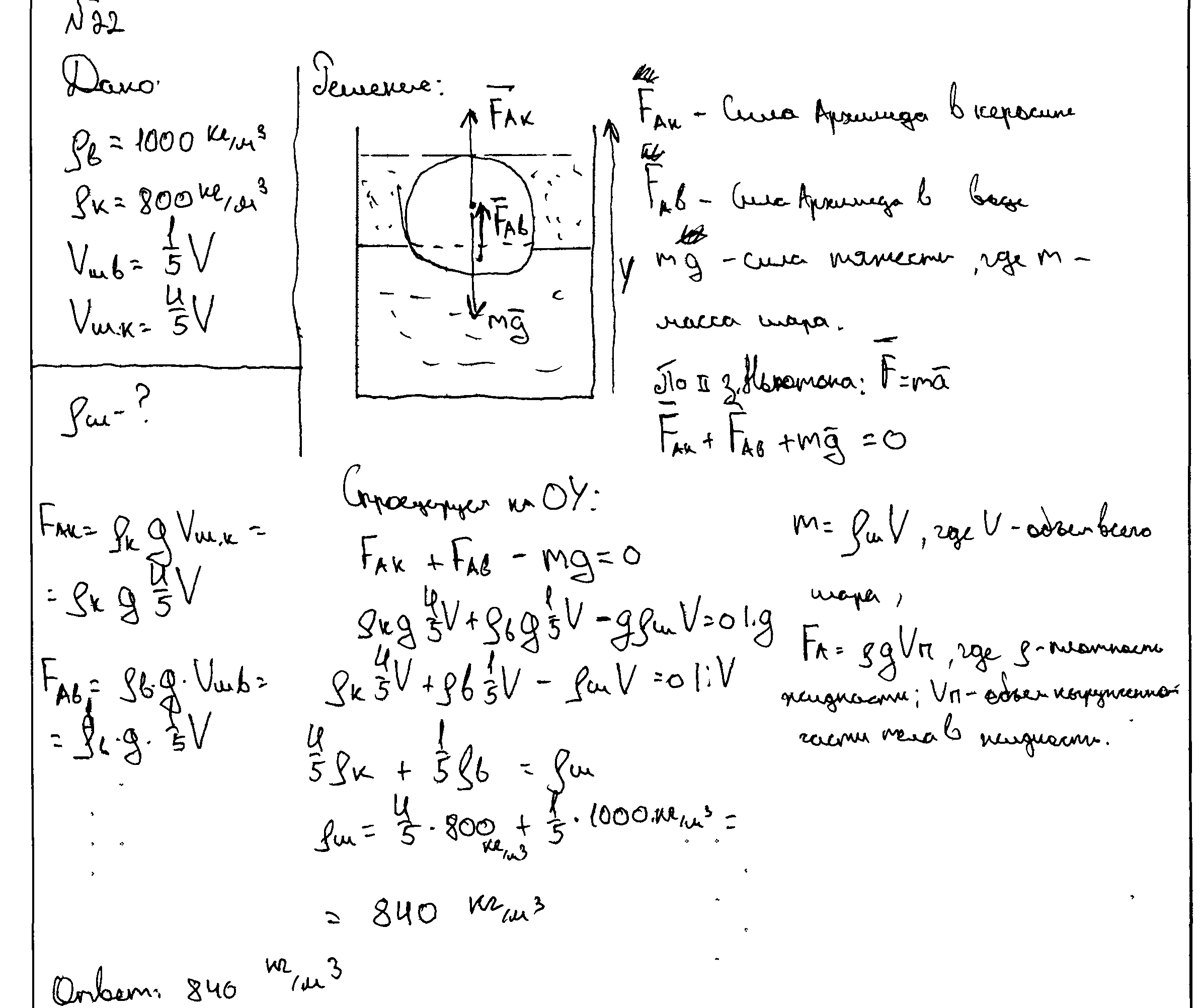 №22
Дано:
ρв = 1000 кг/м³
ρк = 800 кг/м³
Vшв = 1/5 V
Vш.к = 4/5 V
ρш - ?
Решение:
F̅Ак
F̅Ав
mg̅
y
F̅Ак - Сила Архимеда в керосине
F̅Ав - Сила Архимеда в воде
mg̅ - сила тяжести, где m -
масса шара.
По II з. Ньютона: F̅ = ma̅
F̅Ак + F̅Ав + mg̅ = 0
FАк = ρк g Vш.к =
= ρк g 4/5 V
FАв = ρв·g·Vшв =
= ρв·g·1/5 V
Спроецируем на OY:
FАк + FАв - mg = 0
ρк g 4/5 V + ρв g 1/5 V - gρш V = 0 |:g
ρк 4/5 V + ρв 1/5 V - ρш V = 0 |:V
4/5 ρк + 1/5 ρв = ρш
ρш = 4/5 · 800 кг/м³ + 1/5 · 1000 кг/м³ =
= 840 кг/м³
m = ρш V, где V - объем всего
шара,
FА = ρgVп, где ρ - плотность
жидкости; Vп - объем погруженной
части тела в жидкости.
Ответ: 840 кг/м³